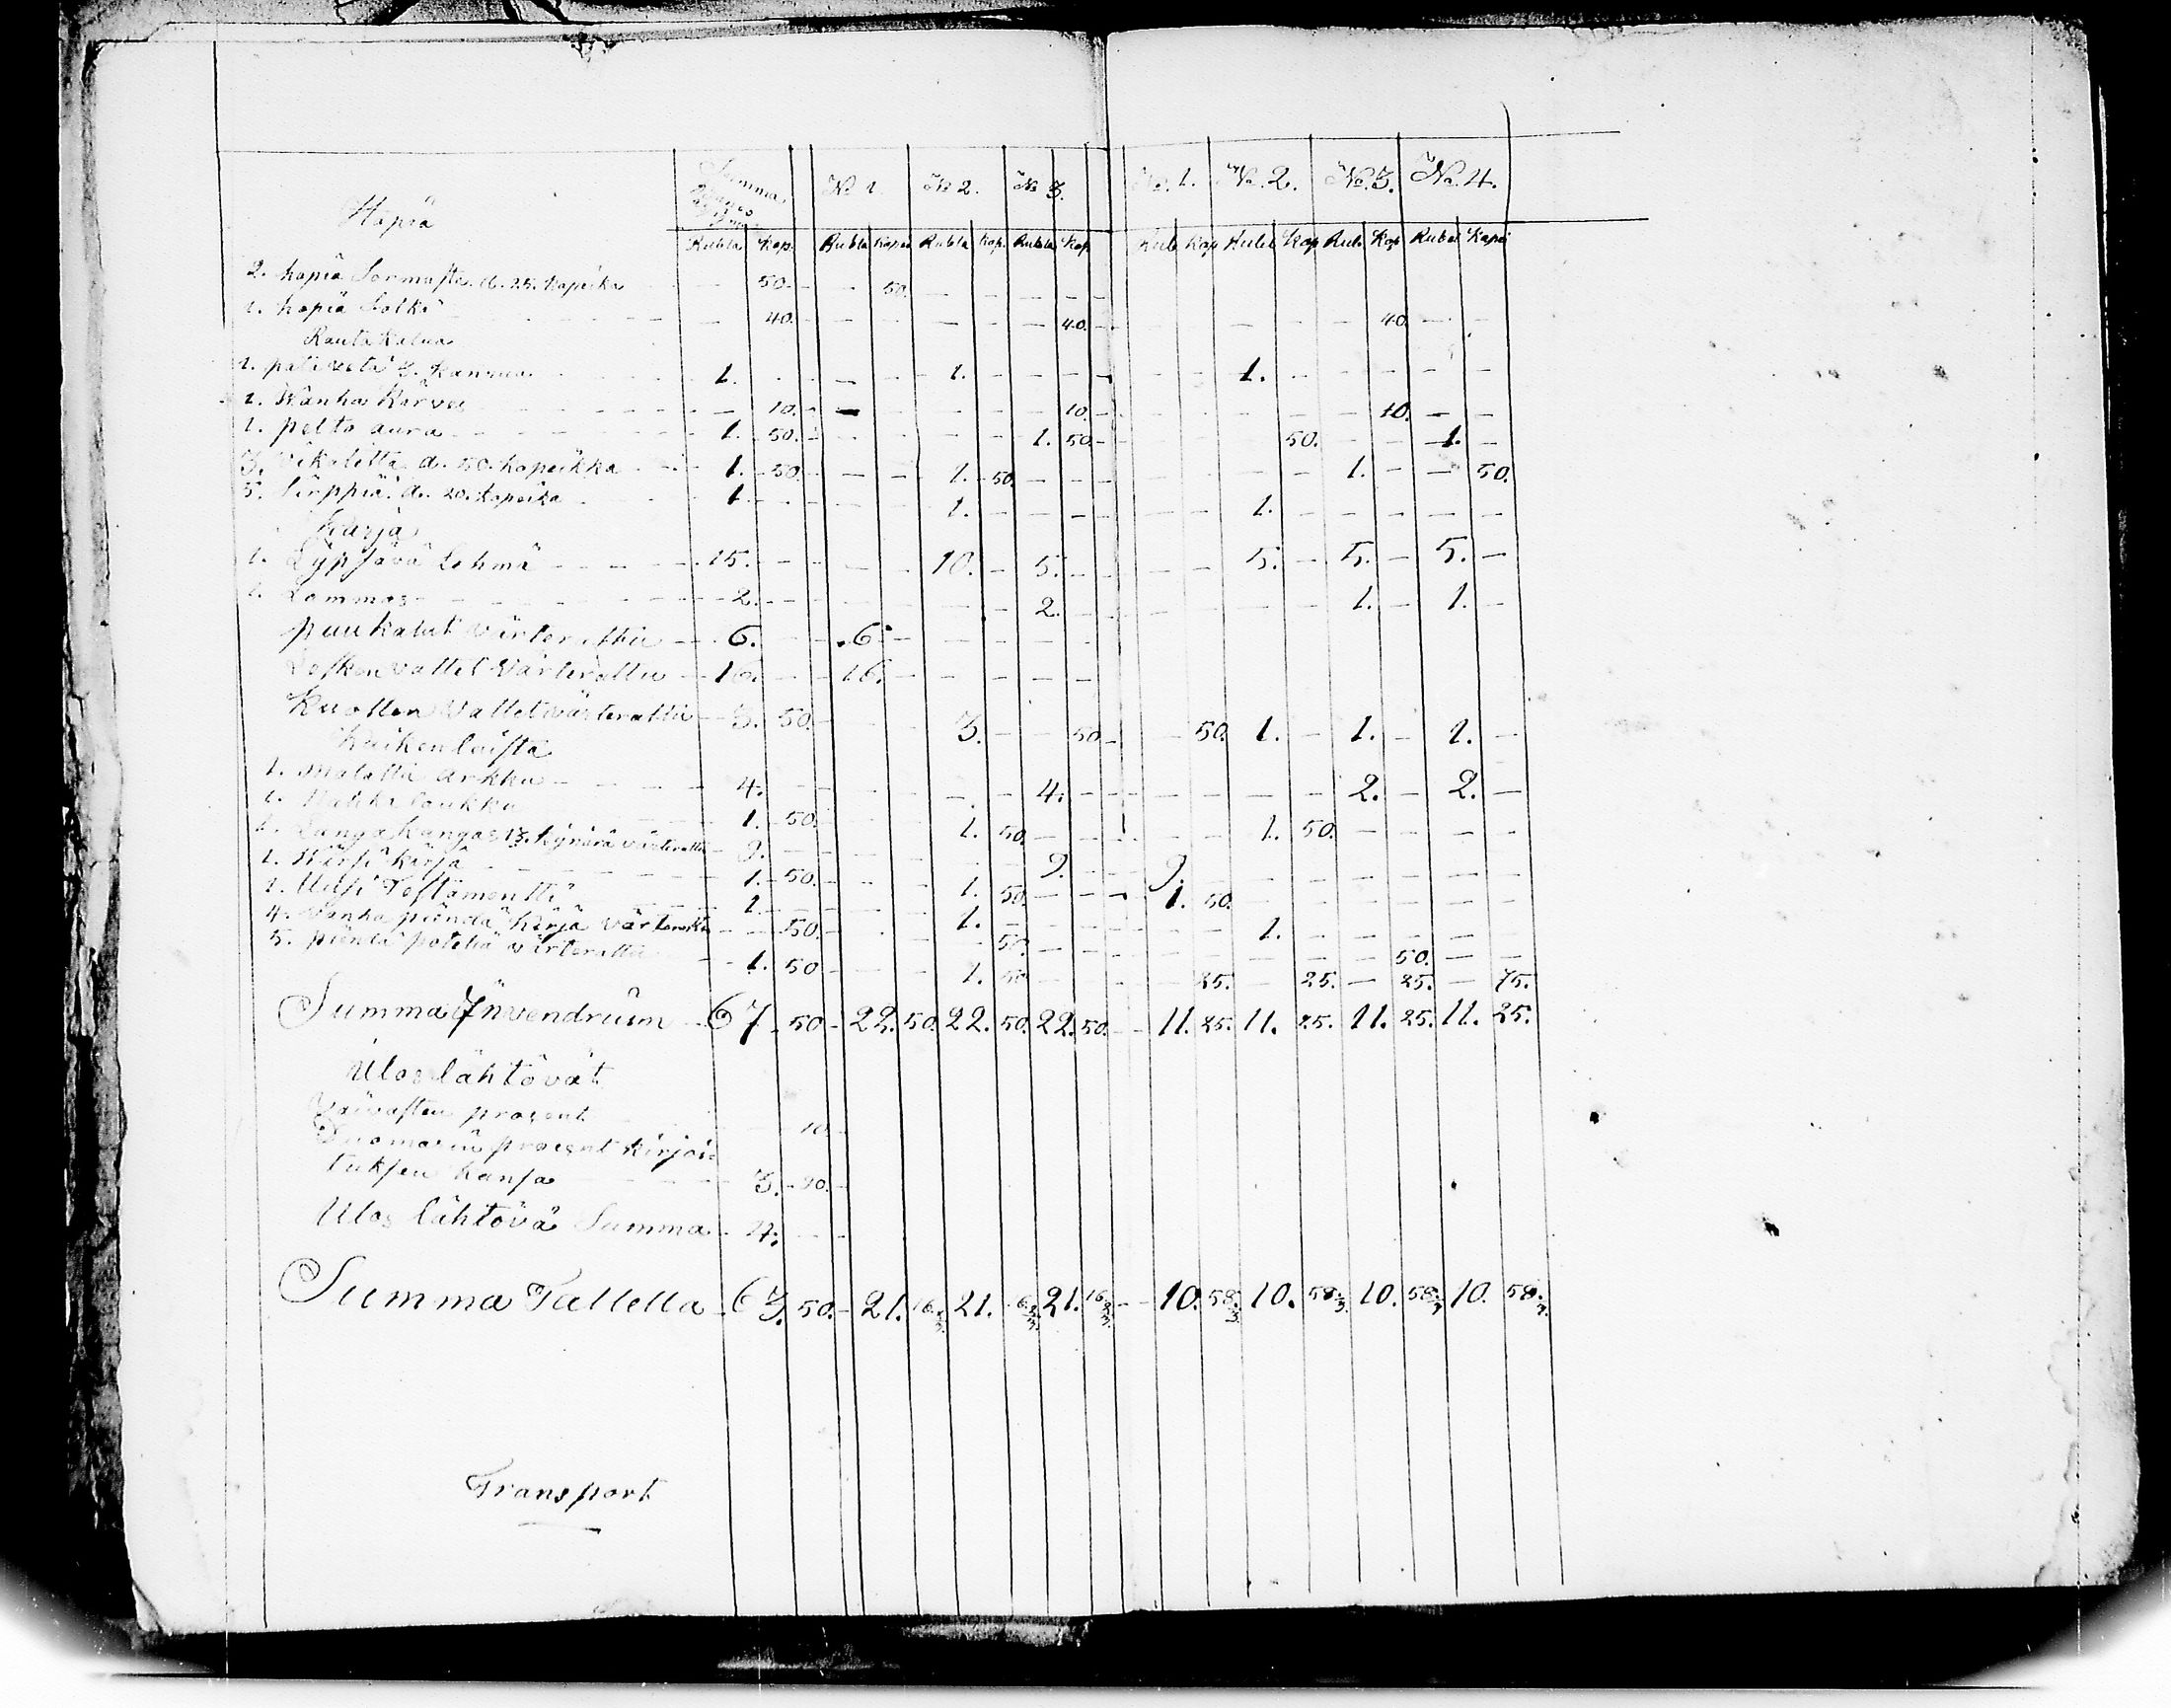 Summa
No 1. No 2. No 3. No. 1. No. 2. No. 3. No. 4.
Hopiä
Rubla Kop. Rubla Kopei Rubla Kop. Rubla Kop Rub Kop Rubl Kop Rub Kop Rubel Kopei
2. hopiä Sormusta a. 25. Kapeika — 50. — 50. — — — —
1. hopiä Solki — 40. — — — — 40. — — — 40. — —
Rauta Kalua
1. pata vetä 3. kannua 1. — 1. — — — 1. — — — — —
1. Wanha Kirves — 10. — — — — 10. — — — — 10. — —
1. pelto aura 1. 50. — — — 1. 50. 50. — — 1. —
3. Vikatetta a. 50. Kopeikka 1. 50. — — 1. 50. — — — — 1. — — 50.
5. Sirppiä a. 20. Kopeika 1. — — 1. — — — 1. — — — — —
Karja
1. Lypsävä Lehmä 15. — — 10. — 5. — — — 5. — 5. — 5. —
1. Lammas 2. — — — — 2. — — — — 1. — 1. —
puukalut värterattu 6. — 6. — — — — —
Lesken vattet värterattu 16. — 16. — — — — —
Kuollen Vattet värterattu 3. 50. 3. — — 50. — 50. 1. — 1. — 1. —
Kaikenlaista
1. Malattu arkku 4. — — — — 4. — — — — 2. — 2. —
1. loukku 1. 50. 1. 50. — — — 1. 50. — — — —
1. Langa kangas 13. kynärä värterattu 9. — — — — 9. — 9. — — — — — —
1. Wirsi kirja 1. 50. — — 1. 50. — — 1. 50. — — — — — —
1. Uusi Testamentti 1. — — 1. — — — — 1. — — — — —
4. Vanha piändä Kirja värterattu — 50. — 50. — — — — — — 50. — —
5. piändä potelia värterattu 1. 50 — — 1. 50 — — 25. — 25. — 25. — 75.
Summa Inventrium 67. 50 — 22. 50. 22. 50. 22. 50. — 11. 25. 11. 25. 11. 25. 11. 25.
Ulos lähtövät
Vaivasten prosent 10. —
Duomarin prosent kirjoi=
tuksen kansa 3. 90. —
Ulos lähtövä Summa 4. — —
Summa Tallella 63. 50. — 21. 16 2/3. 21. 16 2/3. 21. 16 2/3. — 10. 58 1/3. 10. 58 1/3. 10. 58 1/3 10. 58 1/3.
Transport